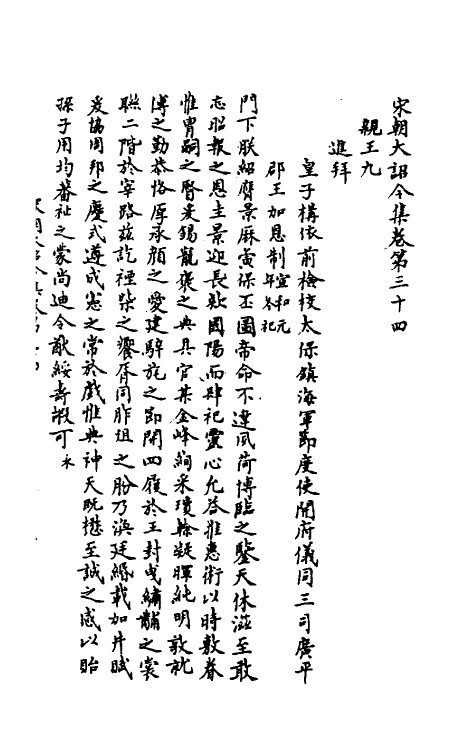 宋朝大詔令集卷第三十四
親王九
進拜
皇子構依前檢校太保鎮海軍節度使開府儀同三司廣平
郡王加恩制宣和元年冬祀
門下朕紹膺景厤寅保丕圖帝命不違夙荷博臨之鑒天休滋至敢
忘昭報之恩主景迎長款國陽而肆祀靈心允荅推惠術以時敷眷
惟冑嗣之賢爰錫寵褒之典具官某金峰絢采瓊榦凝暉純明敦就
傅之勤恭恪厚承顏之愛建騂旄之節開四履於王封曳繡黼之裳
聮二階於宰路茲訖禋柴之饗胥同胙俎之朌乃渙廷綸載加井賦
爰協周邦之慶式遵成憲之常於戲惟典神天既懋至誠之感以貽
孫子用均蕃祉之蒙尚迪令猷綏壽嘏可